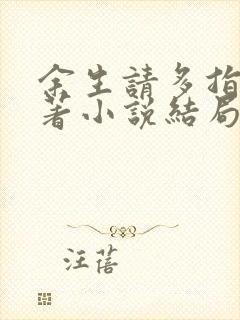 余生請多指
著小說結局
汪蓓